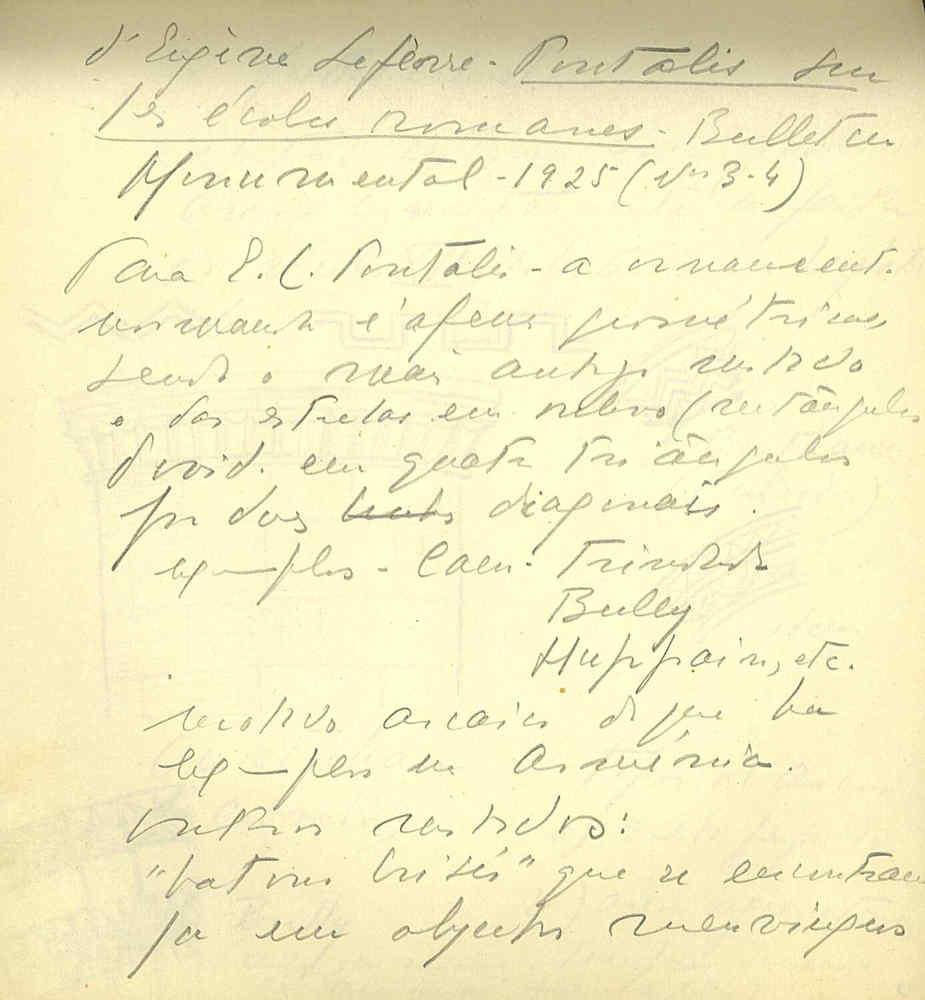 d'Eugène Lefèvre-Pontalis sur
les écoles romanes. Bulletin
Monumental - 1925 (Nos 3-4)
Para E. L. Pontalis - a ornament.
normanda é apenas geométrica,
sendo o mais antigo motivo
o das estrelas em relevo (rectângulos
divid. em quatro triângulos
por duas diagonais.
exemplos - Caen - Trindade
Bully
Huppain, etc.
motivo arcaico de que ha
exemplos na Arménia.
Outros motivos:
"batons brisés" que se encontram
ja em objectos merovingios